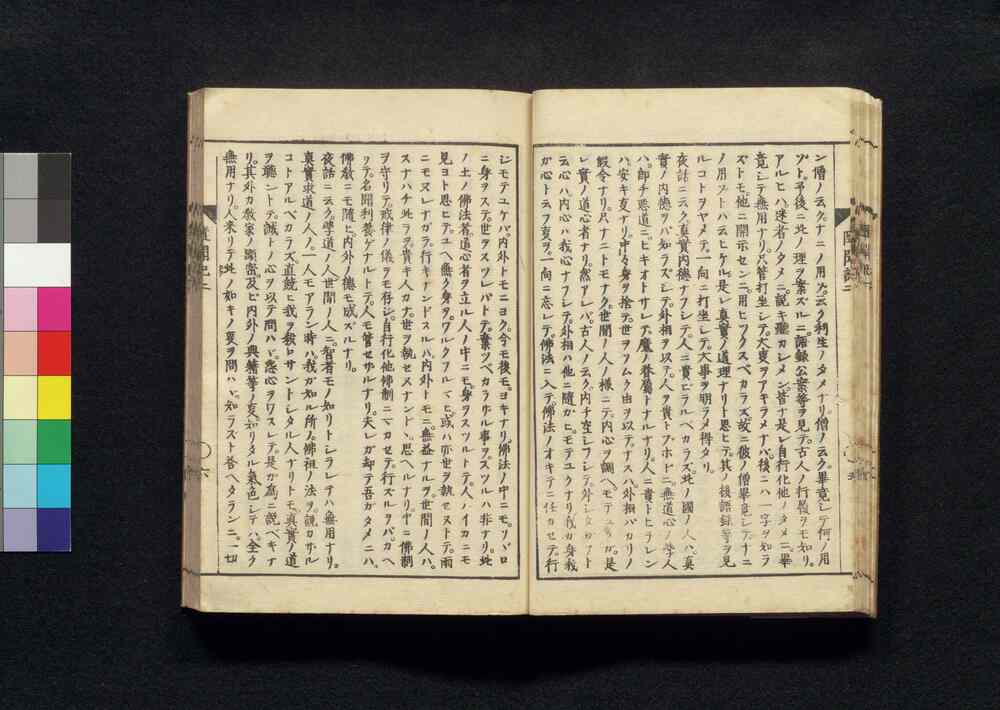 ン僧ノ云クナニノ用ゾ。云ク利生ノタメナリ。僧ノ云ク畢竟シテ何ノ用
ゾト。予後ニ此ノ理ヲ案ズルニ。語録公案等ヲ見テ。古人ノ行履ヲモ知リ。
アルヒハ迷者ノタメニ。説キ聽カシメン。皆ナ是レ自行化他ノタメニ。畢
竟シテ無用ナリ。只管打坐シテ。大事ヲアキラメナバ。後ニハ一字ヲ知ラ
ズトモ。他ニ開示センニ。用ヒツクスベカラズ。故ニ彼ノ僧畢竟シテナニ
ノ用ゾトハ云ヒケル。是レ真實ノ道理ナリト思ヒテ。其ノ後語録等ヲ見
ルコトヲヤメテ。一向ニ打坐シテ。大事ヲ明ラメ得タリ。
夜話ニ云ク。真實内德ナフシテ。人ニ貴ビラルベカラズ。此ノ國ノ人ハ真
實ノ内德ヲバ知ラズシテ。外相ヲ以テ。人ヲ貴トフホドニ。無道心ノ學人
ハ。即チ惡道ニヒキオトサレテ。魔ノ眷屬トナルナリ。人ニ貴トヒラレン
ハ。安キ事ナリ。中々身ヲ捨テ。世ヲソムク由ヲ以テナスハ。外相バカリノ
假令ナリ。只ナニトモナク。世間ノ人ノ様ニテ。内心ヲ調ヘテ
レ實ノ道心者ナリ。然アレバ。古人ノ云ク。内チ空シフシテ。外
云心ハ内心ハ我心ナフシテ。外相ハ他ニ隨カヒモテユクナリ。我ガ身我
ガ心ト云フ事ヲ。一向ニ忘レテ。佛法ニ入テ。佛法ノオキテニ任カセテ。行
ジモテユケバ。内外トモニヨク。今モ後モ。ヨキナリ。佛法ノ中ニモ。ソゞロ
ニ身ヲステ。世ヲスツレバトテ。棄ツベカラザル事ヲ。スツルハ非ナリ。此
ノ土ノ佛法者道心者ヲ立ル人ノ中ニモ。身ヲスツルトテ。人ハイカニモ
見ヨト思ヒテ。ユヘ無ク身ヲワルクフルマヒ。或ハ亦世ヲ執セヌトテ。雨
ニモヌレナガラ。行キナンドスルハ。内外トモニ無益ナルヲ。世間ノ人ハ。
スナハチ此ラヲ。貴キ人カナ世ヲ執セヌナンドヽ思ヘルナリ。中ニ佛制
ヲ守リテ。戒律ノ儀ヲモ存シ。自行化他佛制ニマカセテ。行スルヲバ。カヘ
リテ名聞利養ゲナルトテ。人モ管セザルナリ。夫レガ却テ吾ガタメニハ。
佛教ニモ隨ヒ。内外ノ德モ成ズルナリ。
夜話ニ云ク。學道ノ人世間ノ人ニ。智者モノ知リトシラレテハ無用ナリ。
真實求道ノ人ノ。一人モアラン時ハ。我ガ知ル所ノ佛祖ノ法ヲ。説カザル
コトアルベカラズ。直饒ヒ我ヲ殺ロサントシタル人ナリトモ。真實ノ道
ヲ聽ントテ。誠トノ心ヲ以テ問ハヾ。怨心ヲワスレテ。是ガ爲ニ説ベキナ
リ。其外カ教家ノ顯密及ビ内外ノ典籍等ノ事。知リタル氣色シテハ。全ク
無用ナリ。人來リテ此ノ如キノ事ヲ問ハヾ。知ラズト答ヘタランニ。一切